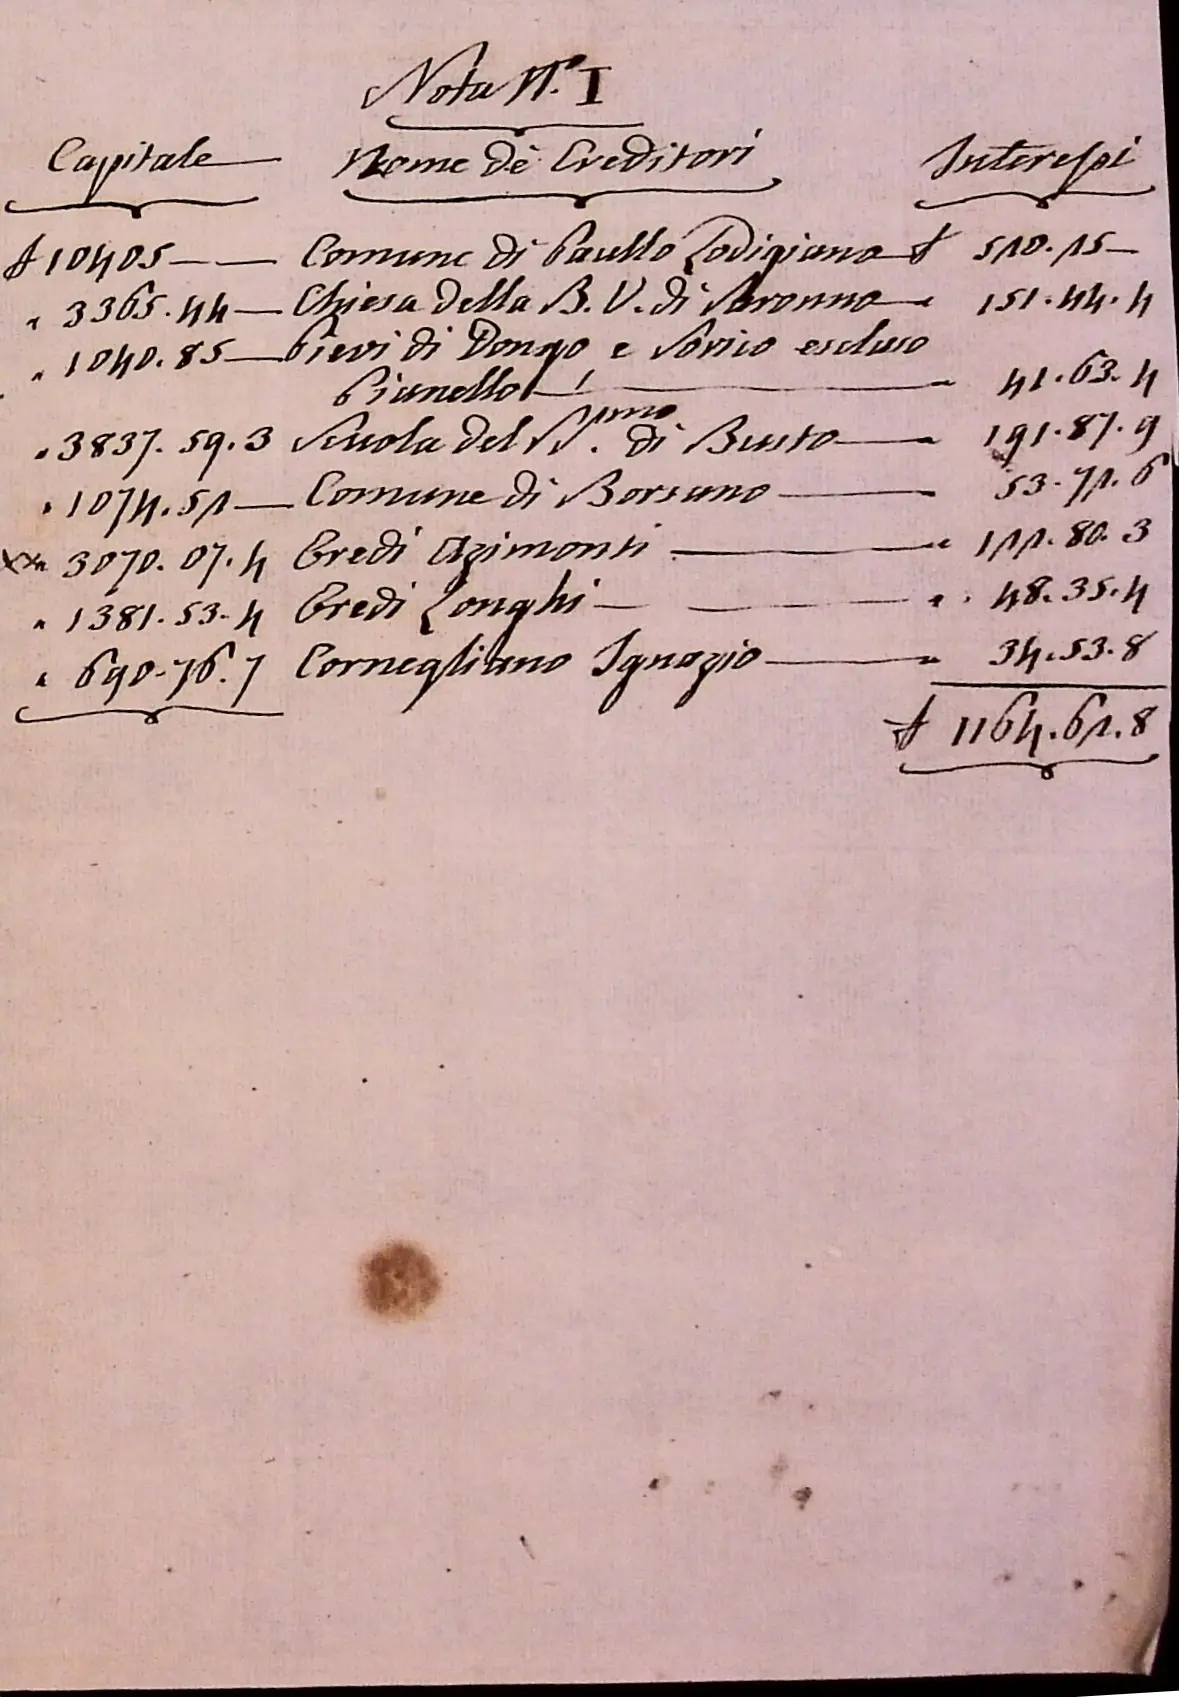 Nota N.° I
Capitale Nome de Creditori Interessi
£ 10405 — — Comune di Paullo Lodigiano £ 520.25 —
" 3365.44 — Chiesa della B. V. di Saronno — " 151.44.4
" 1040.85 — Pievi di Dongo e Sorico escluso
Pianello — " 41.63.4
" 3837.59.3 Scuola del SS.mo di Busto — " 191.87.9
" 1074.52 — Comune di Borsano — " 53.72.6
XX" 3070.07.4 Eredi Azimonti — " 122.80.3
" 1381.53.4 Eredi Longhi — — " 48.35.4
" 690.76.7 Cornegliano Ignazio — " 34.53.8
£ 1164.62.8